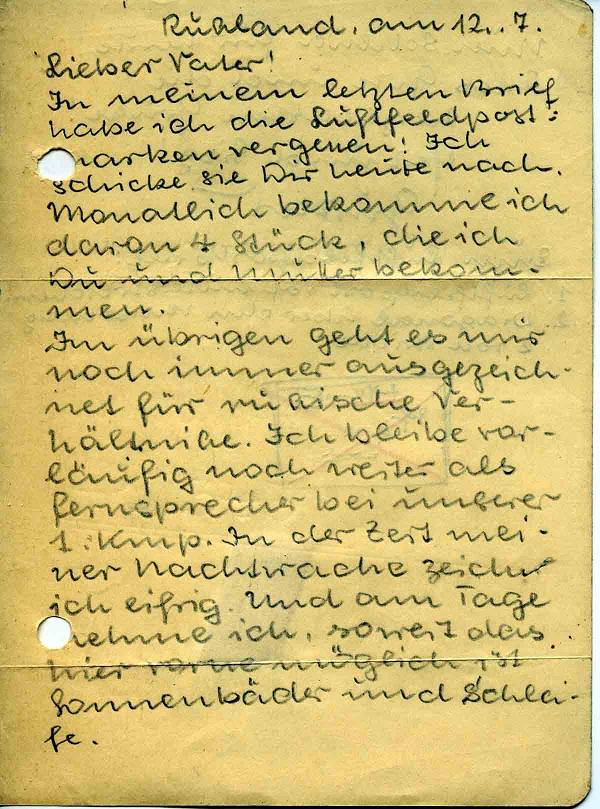 Rußland, am 12. 7.
Lieber Vater!
In meinem letzten Brief
habe ich die Luftfeldpost-
marken vergessen! Ich
schicke sie Dir heute nach.
Monatlich bekomme ich
davon 4 Stück, die ich
Du und Mutter bekom-
men.
Im übrigen geht es mir
noch immer ausgezeich-
net für russische Ver-
hältnisse. Ich bleibe vor-
läufig noch weiter als
Fernsprecher bei unserer
1. Komp. In der Zeit mei-
ner Nachtwache zeichne
ich eifrig. Und am Tage
nehme ich, soweit das
hier vorne möglich ist
Sonnenbäder und Schlei-
fe.